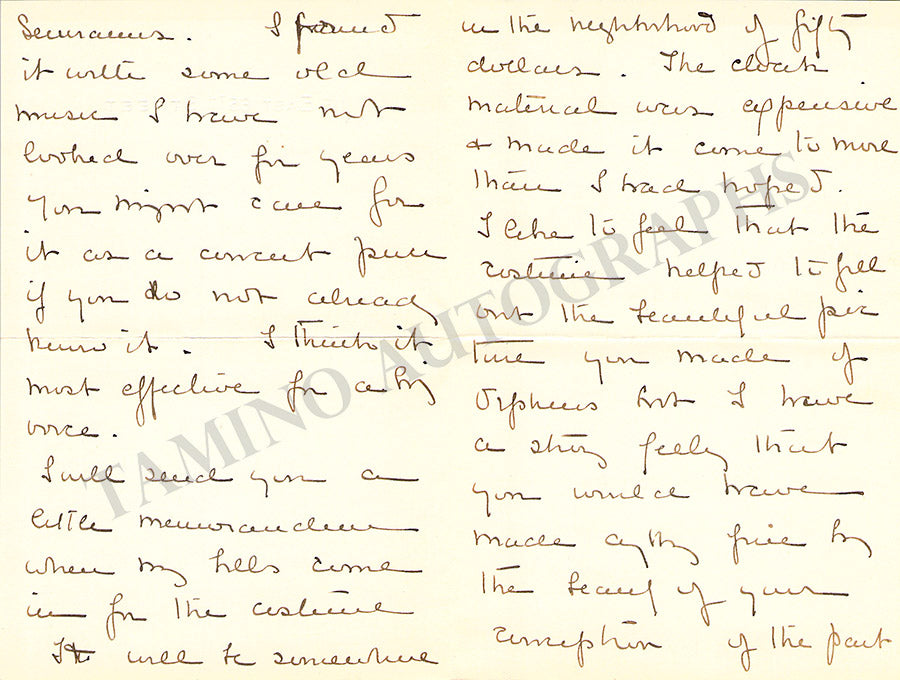 Semiramis. I found
it with some old
music I have not
looked over for years
You might care for
it as a concert piece
if you do not already
know it. I think it
most effective for a big
voice.
I will send you a
little memorandum
when my bills come
in for the costume
It will be somewhere
in the neighborhood of fifty
dollars. The cloak
material was expensive
& made it come to more
than I had hoped.
I like to feel that the
costume helped to fill
out the beautiful pic
ture you made of
Orpheus but I have
a strong feeling that
you would have
made anything fine by
the beauty of your
conception of the part
TAMINO AUTOGRAPHS